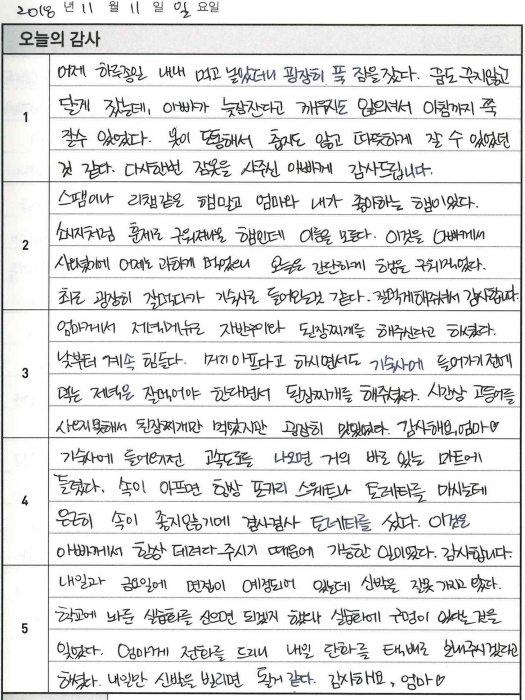 2018 년 11 월 11 일 일 요일
오늘의 감사
1
어제 하루종일 내내 먹고 놀았더니 굉장히 푹 잠을 잤다. 꿈도 꾸지않고
달게 잤는데, 아빠가 늦잠잔다고 깨우지도 않으셔서 아침까지 쭉
잘수 있었다. 옷이 도톰해서 춥지도 않고 따뜻하게 잘 수 있었던
것 같다. 다시한번 잠옷을 사주신 아빠께 감사드립니다.
2
스팸이나 리챔같은 햄말고 엄마와 내가 좋아하는 햄이있다.
소시지처럼 훈제로 구워져나온 햄인데 이름을 모른다. 이것을 아빠께서
사오셨기에 어제도 과하게 먹었으니 오늘은 간단하게 햄을 구워먹었다.
최고로 굉장히 잘먹다가 기숙사로 들어오는것 같다. 잘먹게해주셔서 감사합니다.
3
엄마께서 저녁메뉴로 자반구이와 된장찌개를 해주신다고 하셨다.
낮부터 계속 힘들다. 머리아프다고 하시면서도 기숙사에 들어가기전에
먹는 저녁은 잘먹어야 한다면서 된장찌개를 해주셨다. 시간상 고등어를
사오지못해서 된장찌개만 먹었지만 굉장히 맛있었다. 감사해요,엄마♡
4
기숙사에 들어오기전 고속도로를 나오면 거의 바로 있는 마트에
들렸다. 속이 아프면 항상 포카리 스웨트나 토레타를 마시는데
은근히 속이 좋지않기에 겸사겸사 토레타를 샀다. 이것은
아빠께서 항상 데려다 주시기 때문에 가능한 일이었다. 감사합니다.
5
내일과 금요일에 면접이 예정되어 있는데 신발을 잘못 가지고 왔다.
학교에 놔둔 실습화를 신으면 되겠지 했으나 실습화에 구멍이 있다는 것을
잊었다. 엄마께 전화를 드리니 내일 단화를 택배로 보내주시겠다고
하셨다. 내일만 신발을 빌리면 될거 같다. 감사해요, 엄마♡